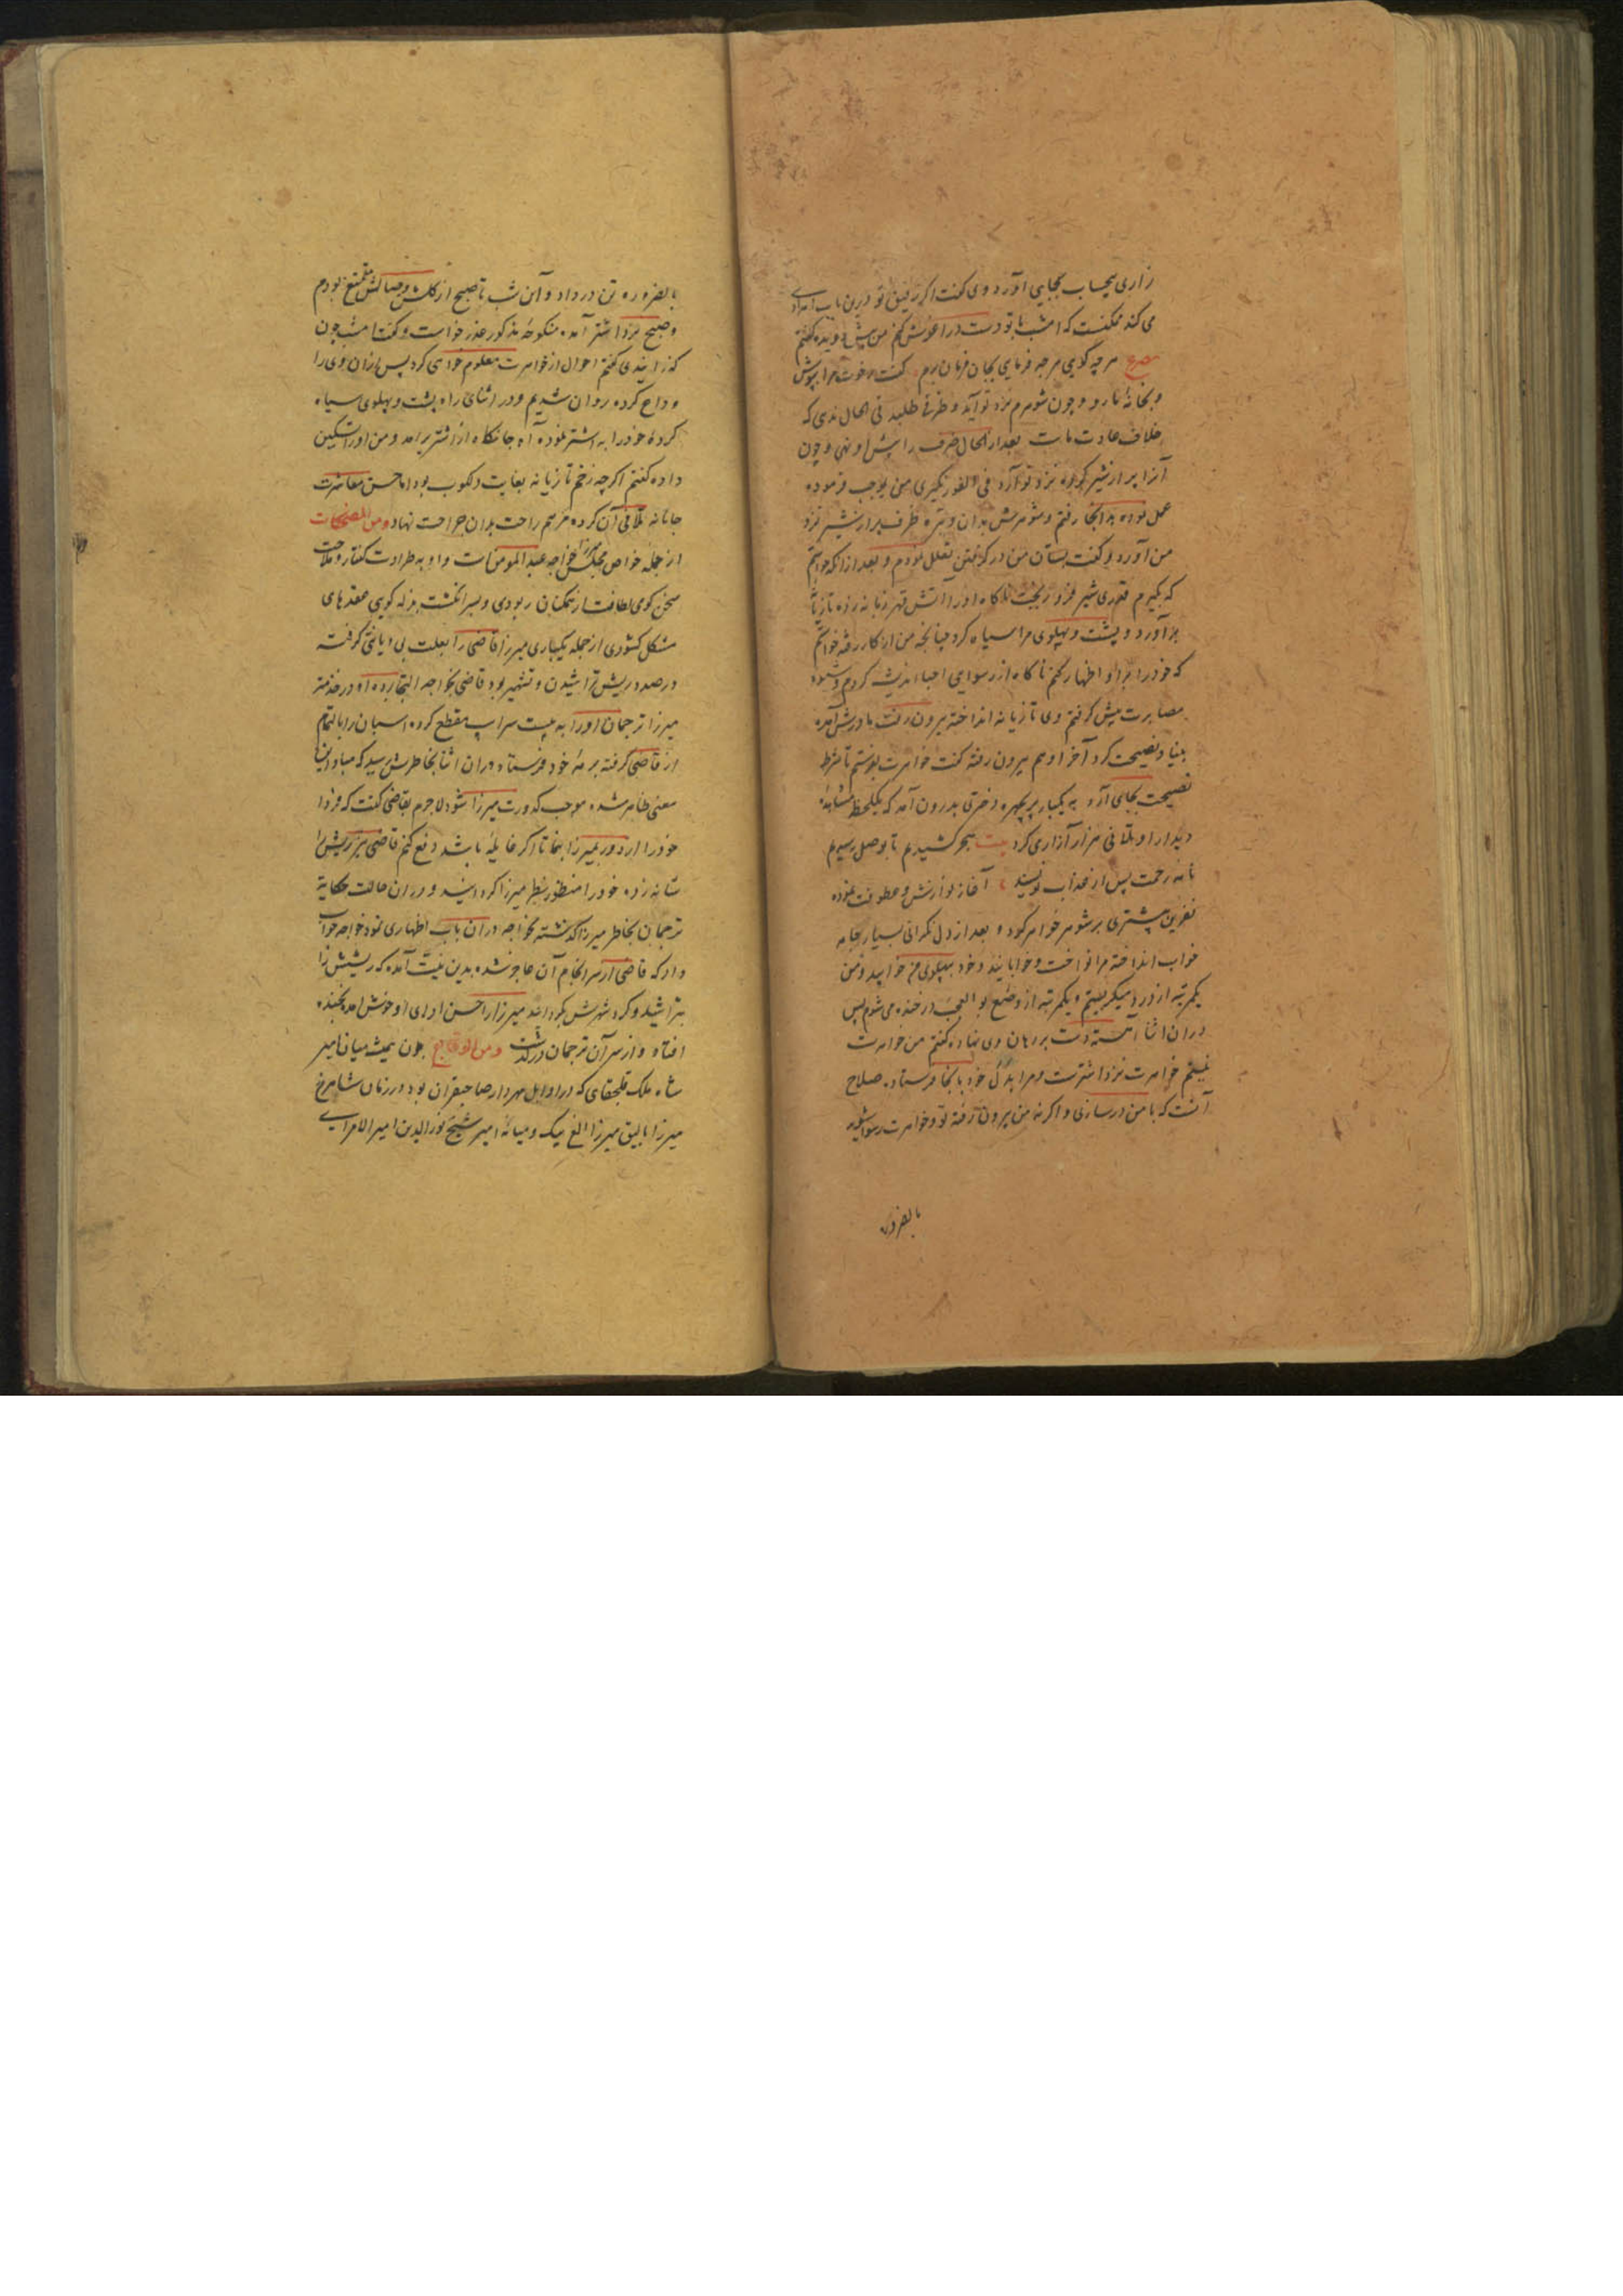 زاری بیحساب بجایی آورد وی گفت اگر رفیق تو درین باب امدادی
می کند ممکنست که امشب با تو دست در آغوش کنم من پیش دویده گفتم
مصرع هرچه گویی هرچه فرمایی بجان فرمان برم گفت رخوت مرا بپوش
و بخانهٔ ما رو و چون شوهرم نزد تو آید و ظرفی طلبد فی الحال ندی که
خلاف عادت ماست بعد از الحال ظرف را پیش او نهی و چون
آنرا پر از شیر کرده نزد تو آرد فی الفور نگیری من بموجب فرموده
عمل نموده بدانجا رفتم و شوهرش بدان وتیره ظرف پر از شیر نزد
من آورد و گفت بستان من در گرفتن تعلل نمودم و بعد از آنکه خواستم
که بگیرم قدری شیر فرو ریخت ناگاه او را آتش قهر زبانه زده تازیانه
برآورد و پشت و پهلوی مرا سیاه کرد چنانچه من از کار رفته خواستم
که خود را بر او اظهار کنم ناگاه از رسوایی احبا اندیشه کردم و شیوه
مصابرت پیش گرفتم وی تازیانه انداخته بیرون رفت مادرش آمده
بنیاد نصیحت کرد آخر او هم بیرون رفته گفت خواهرت بفرستم تا شرط
نصیحت بجای آرد به یکبار پریچهره دختری بدرون آمد که یکلحظه مشاهدهٔ
دیدار او تلافی هزار آزاری کرد بیت هجر کشیدیم تا بوصل رسیدیم
نامه رحمت پس از عذاب نویسند آغاز نوازش و عطوفت نموده
نفرین بیشتری بر شوهر خواهر کرد و بعد از دل نگرانی بسیار جامه
خواب انداخته مرا نواخت و خوابانید و خود بپهلوی من خوابید و من
یکمرتبه از درد میگریستم و یکمرتبه از وضع بو العجب در خنده می شدم پس
در آن اثنا آهسته دست بر دهان وی نهاده گفتم من خواهرت
نیستم خواهرت نزد اشترست و مرا بدل خود باینجا فرستاده صلاح
آنست که با من درسازی و اگر نه من بیرون رفته تو و خواهرت رسوا شوید
بالضروره
بالضروره تن در داد و آن شب تا صبح از گلشن وصالش متمتع بودم
و صبح نزد اشتر آمده منکوحهٔ مذکور عذر خواست و گفت امشب چون
گذرانیدی گفتم احوال از خواهرت معلوم خواهی کرد پس از آن وی را
وداع کرده روان شدیم و در اثنای راه پشت و پهلوی سیاه
کرده خود را به اشتر نموده آه جانکاه از اشتر برآمد و من او را تسکین
داده گفتم اگرچه زخم تازیانه بغایت دلکوب بود اما حسن معاشرت
جانانه تلافی آن کرده مرهم راحت بدان جراحت نهاد ومن المضحکات
از جمله خواص مجلس میرزا خواجه عبد المومن است و او به طراوت گفتار و ملاحت
سخن گوی لطافت از همگنان ربودی و بسر انگشت بذله گویی عقدهای
مشکل کشودی از جمله یکباری میرزا قاضی را بعلت بی دیانتی گرفته
در صدد ریش تراشیدن و تشهیر بود قاضی بخواجه التجا برده او در خدمت
میرزا ترجمان او را به بیست سر اسپ مقطع کرده اسپان را بالتمام
از قاضی گرفته برمهٔ خود فرستاد در آن اثنا بخاطرش رسید که مبادا این
معنی ظاهر شده موجب کدورت میرزا شود لاجرم بقاضی گفت که فردا
خود را از دور بمیرزا بنما تا اگر غایله باشد دفع کنم قاضی نیز ریش را
شانه زده خود را منظور نظر میرزا گردانید و در آن حالت حکایة
ترجمان بخاطر میرزا گذشته بخواجه در آن باب اظهاری نمود خواجه جواب
داد که قاضی از سرانجام آن عاجز شده بدین نیت آمده که ریشش را
بتراشید و گرد شهرش بگردانید میرزا را حسن ادای او خوش آمده بخنده
افتاد و از سر آن ترجمان درگذشت ومن الوقایع چون همیشه میان امیر
شاه ملک قلجقای که در اوایل مهردار صاحبقران بود و در زمان شاهرخ
میرزا اتالیق میرزا الغ بیک و میانهٔ امیر شیخ نور الدین امیر الامرای